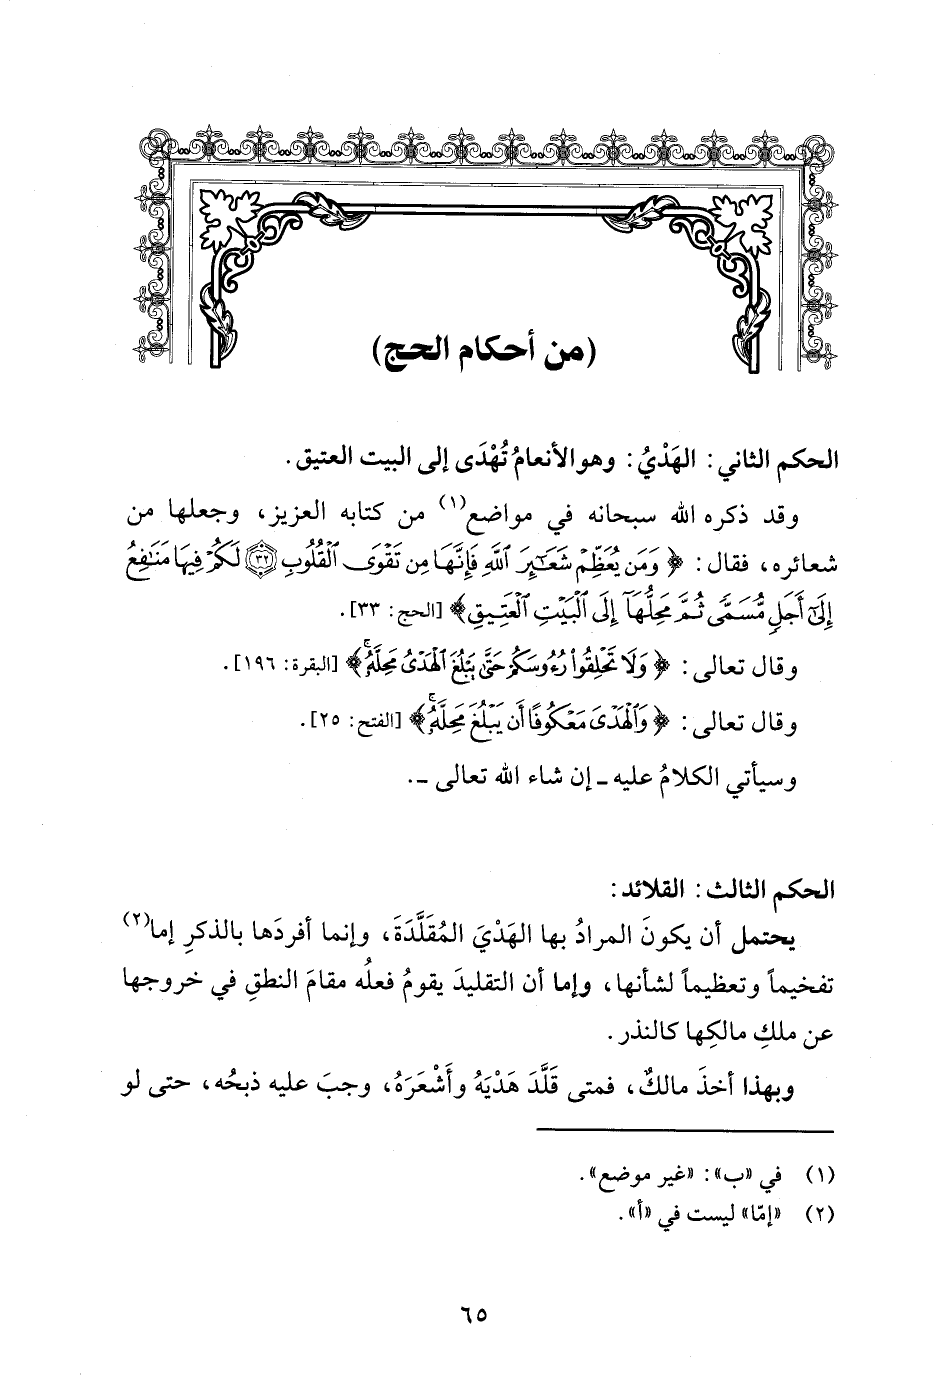 (من أحكام الحج)
الحكم الثاني: الهَدْيُ: وهو الأنعامُ تُهْدَى إلى البيت العتيق.
وقد ذكره الله سبحانه في مواضع(١) من كتابه العزيز، وجعلها من
شعائره، فقال: ﴿وَمَن يُعَظِّمْ شَعَٰٓئِرَ ٱللَّهِ فَإِنَّهَا مِن تَقْوَى ٱلْقُلُوبِ ٣٢ لَكُمْ فِيهَا مَنَٰفِعُ
إِلَىٰٓ أَجَلٍ مُّسَمًّى ثُمَّ مَحِلُّهَآ إِلَى ٱلْبَيْتِ ٱلْعَتِيقِ﴾ [الحج: ٣٣].
وقال تعالى: ﴿وَلَا تَحْلِقُوا۟ رُءُوسَكُمْ حَتَّىٰ يَبْلُغَ ٱلْهَدْىُ مَحِلَّهُۥ﴾ [البقرة: ١٩٦].
وقال تعالى: ﴿وَٱلْهَدْىَ مَعْكُوفًا أَن يَبْلُغَ مَحِلَّهُۥ﴾ [الفتح: ٢٥].
وسيأتي الكلامُ عليه ـ إن شاء الله تعالى ـ.
الحكم الثالث: القلائد:
يحتمل أن يكونَ المرادُ بها الهَدْيَ المُقَلَّدَةَ، وإنما أفردَها بالذكرِ إما(٢)
تفخيماً وتعظيماً لشأنها، وإما أن التقليدَ يقومُ فعلُه مقامَ النطقِ في خروجها
عن ملكِ مالكِها كالنذر.
وبهذا أخذَ مالكٌ، فمتى قَلَّدَ هَدْيَهُ وأَشْعَرَهُ، وجبَ عليه ذبحُه، حتى لو
(١) في «ب»: «غير موضع».
(٢) «إمّا» ليست في «أ».
٦٥